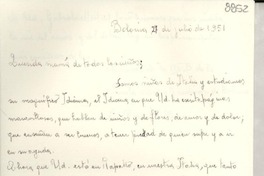 8852
Bolonia, 27 de julio de 1951
Querida mamá de todos los cuentos:
Somos niños de Italia y estudiamos
su magnífico Idioma, el Idioma en que Ud. ha escrito páginas
maravillosas, que hablan de niños y de flores, de amor y de dolor;
que enseñan a ser buenos, a tener piedad de quien sufre y a ir
en su ayuda.
Ahora, que Ud. está en Rapallo, en nuestra Italia, que tanto